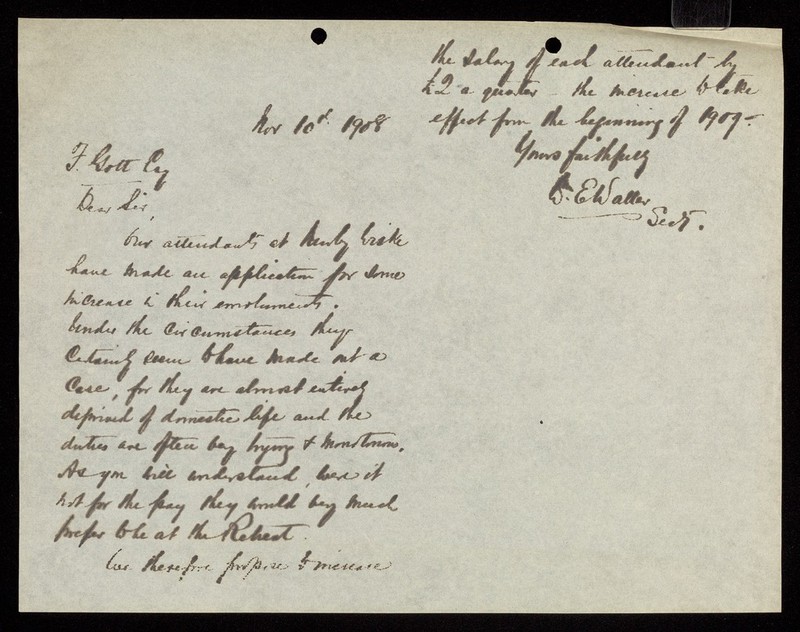 Nov 10th 1908
F. Gott Esq
Dear Sir,
Our attendants at Newby Wiske
have made an application for some
increase in their emoluments.
Under the circumstances they
certainly seem to have made out a
case, for they are almost entirely
deprived of domestic life and the
duties are often very trying & monotonous.
As you will understand, were it
not for the pay they would very much
prefer to be at the Retreat.
We therefore propose to increase
the salary of each attendant by
£2 a quarter - the increase to take
effect from the beginning of 1909 -
Yours faithfully
E Waller
Secy.